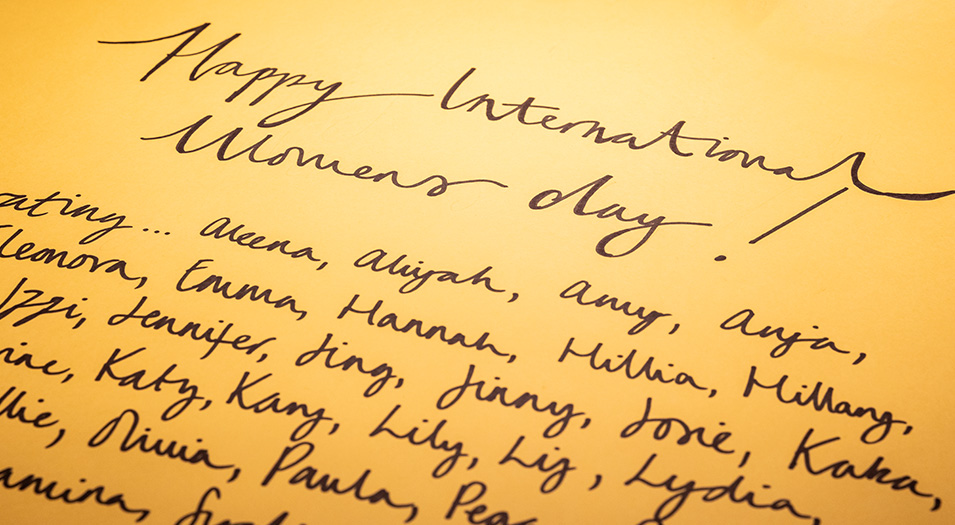 Happy International
Womens day!
rating... Aleena, Aliyah, Amy, Anja,
Eleonora, Emma, Hannah, Hillia, Hillary,
Izzi, Jennifer, Jing, Jinny, Josie, Kaka,
rine, Katy, Kary, Lily, Liz, Lydia,
llie, Olivia, Paula,
amina,